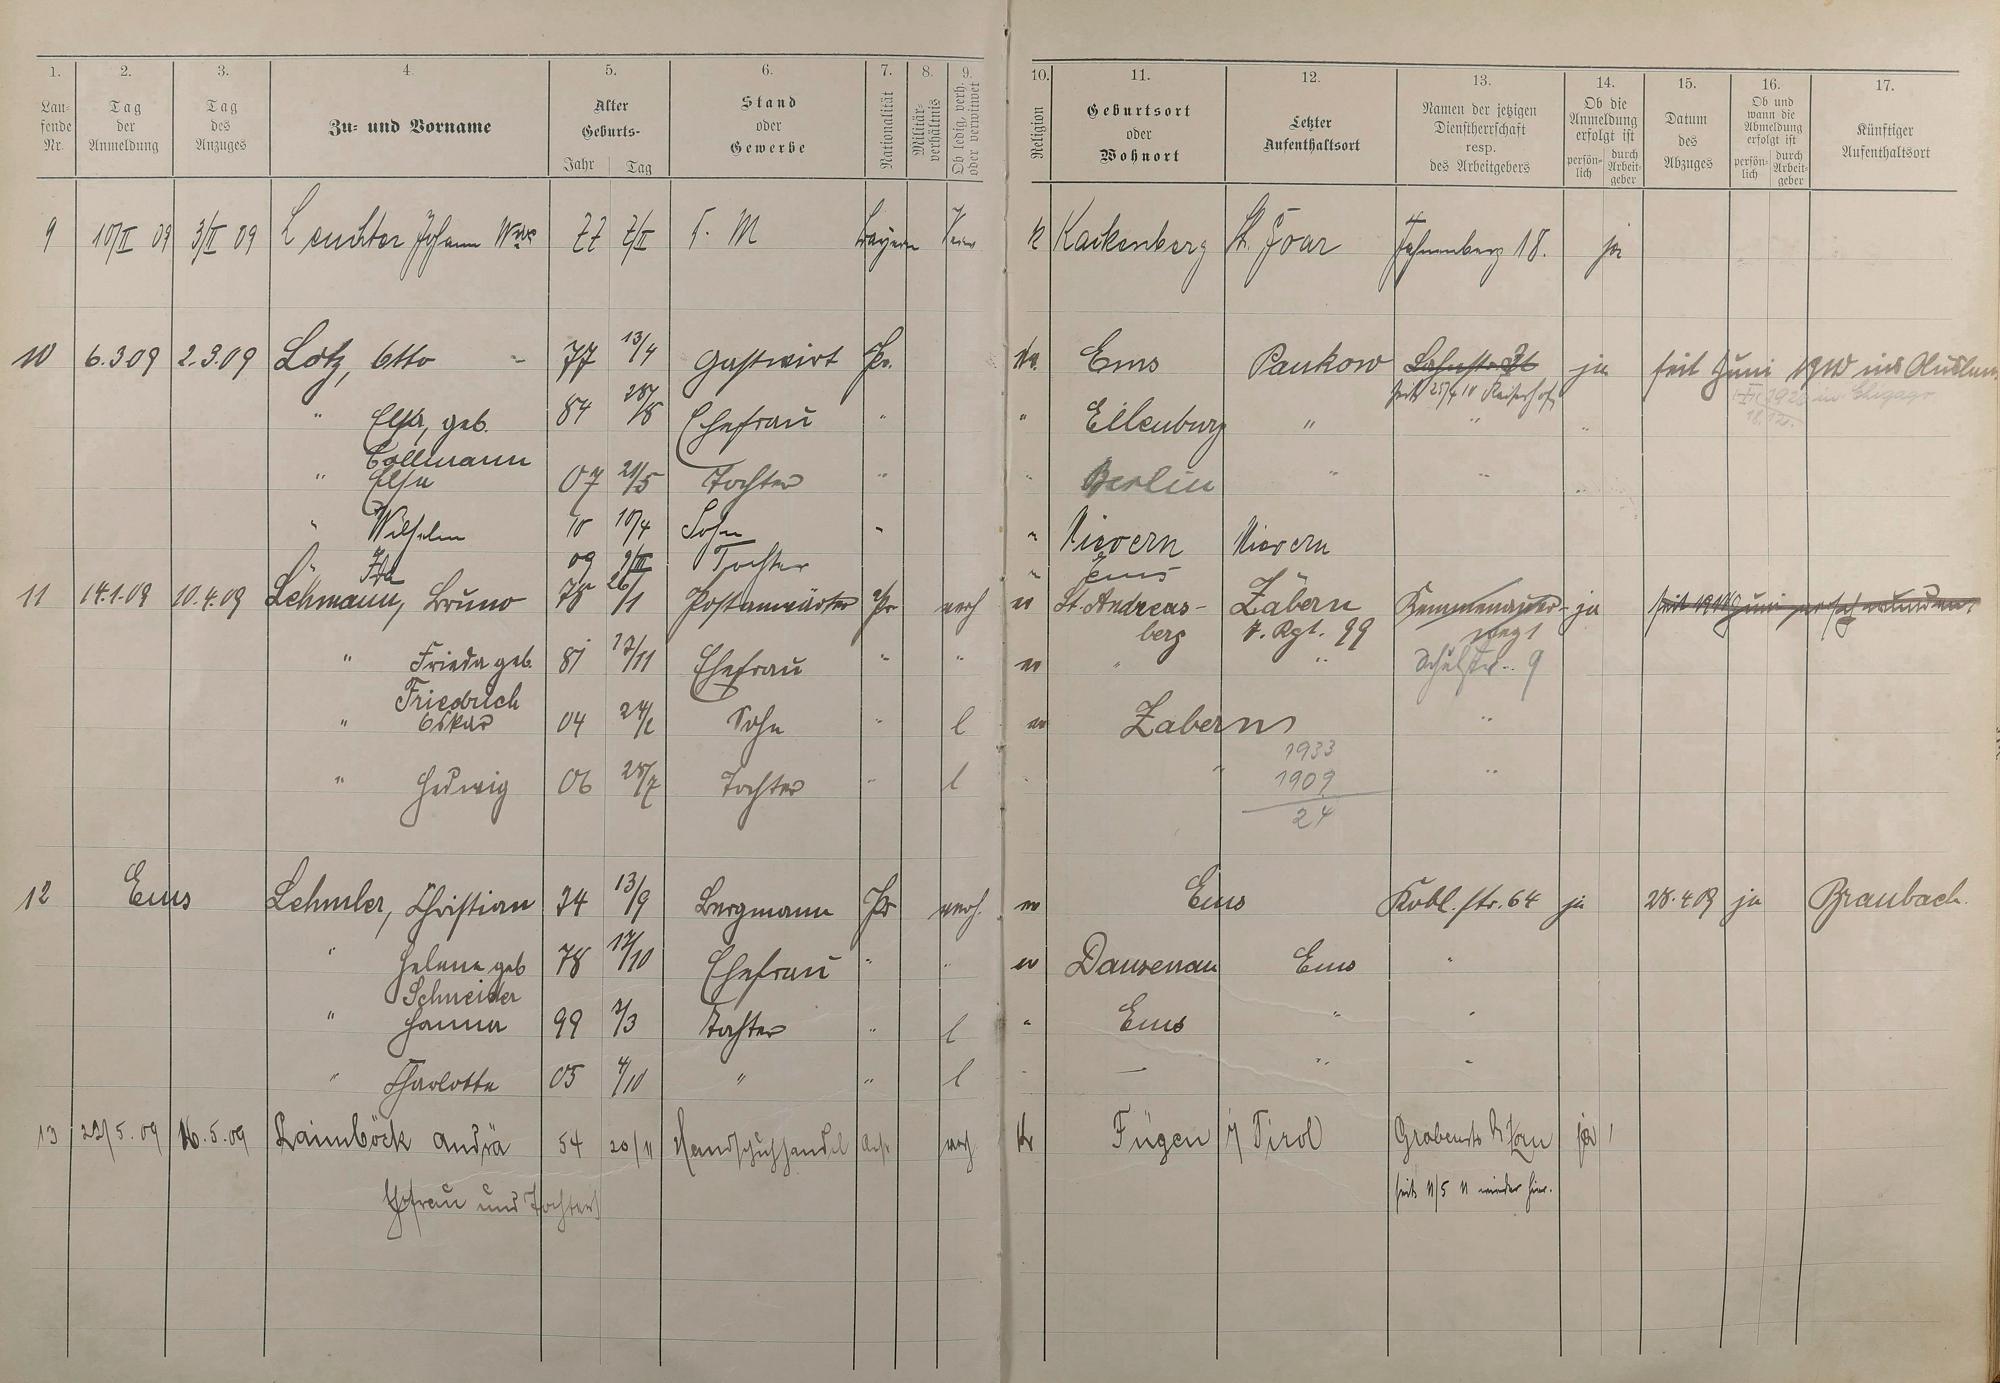 1. 2. 3. 4. 5. 6. 7. 8. 9. 10. 11. 12. 13. 14. 15. 16. 17.
Lau-fende Nr. Tag der Anmeldung Tag des Anzuges Zu- und Vorname Alter Geburts- Jahr Tag Stand oder Gewerbe Nationalität Militär-verhältnis Ob ledig, verh. oder verwitwet Religion Geburtsort oder Wohnort Letzter Aufenthaltsort Namen der jetzigen Dienstherrschaft resp. des Arbeitgebers Ob die Anmeldung erfolgt ist persön-lich durch Arbeit-geber Datum des Abzuges Ob und wann die Abmeldung erfolgt ist persön-lich durch Arbeit-geber Künftiger Aufenthaltsort
9 10/II 09 3/II 09 Leuchter Johann Wwe 77 7/II T. M Bayern k Kackenberg St. Goar 18. ja
10 6.3.09 2.3.09 Lotz, Otto 77 13/4 Gastwirt Pr. Ems Pankow ja seit Juni 1910 ins
seit 25/4 10 Kaiserhof
" Elsa, geb. 84 28/8 Ehefrau " " Eilenburg " " "
Collmann
" Elsa 07 21/5 Tochter " " Berlin " "
" Wilhelm 10 10/4 Sohn " " Nievern Nievern
" Ida 09 9/III Tochter " Ems
11 14.1.09 10.4.09 Lehmann, Bruno 78 26/1 Postanwärter Pr verh ev St. Andreas- Zabern Kemmenauer- ja
berg J. Rgt. 99 weg 1
" Frieda geb. 81 17/11 Ehefrau " " ev " " Schulstr. 9
Friedrich
" Oskar 04 Sohn " l ev Zabern "
1933
" Hedwig 06 28/7 Tochter " l " " 1909 "
24
12 Ems Lehmler, Christian 74 13/9 Bergmann Pr verh. ev Ems Kobl. str. 64 ja 28.4 09 ja Braubach.
" Helene geb 78 17/10 Ehefrau " " ev Dausenau Ems "
Schneider
" Hanna 99 7/3 Tochter " l " Ems " "
" Charlotte 05 4/10 " " l " — " "
13 22/5.09 16.5.09 Raimböck Andrä 54 20/11 Handschuhhandel verh Fügen i/ Tirol ja
Ehefrau und Tochter seit 11/5 11 wieder hier.